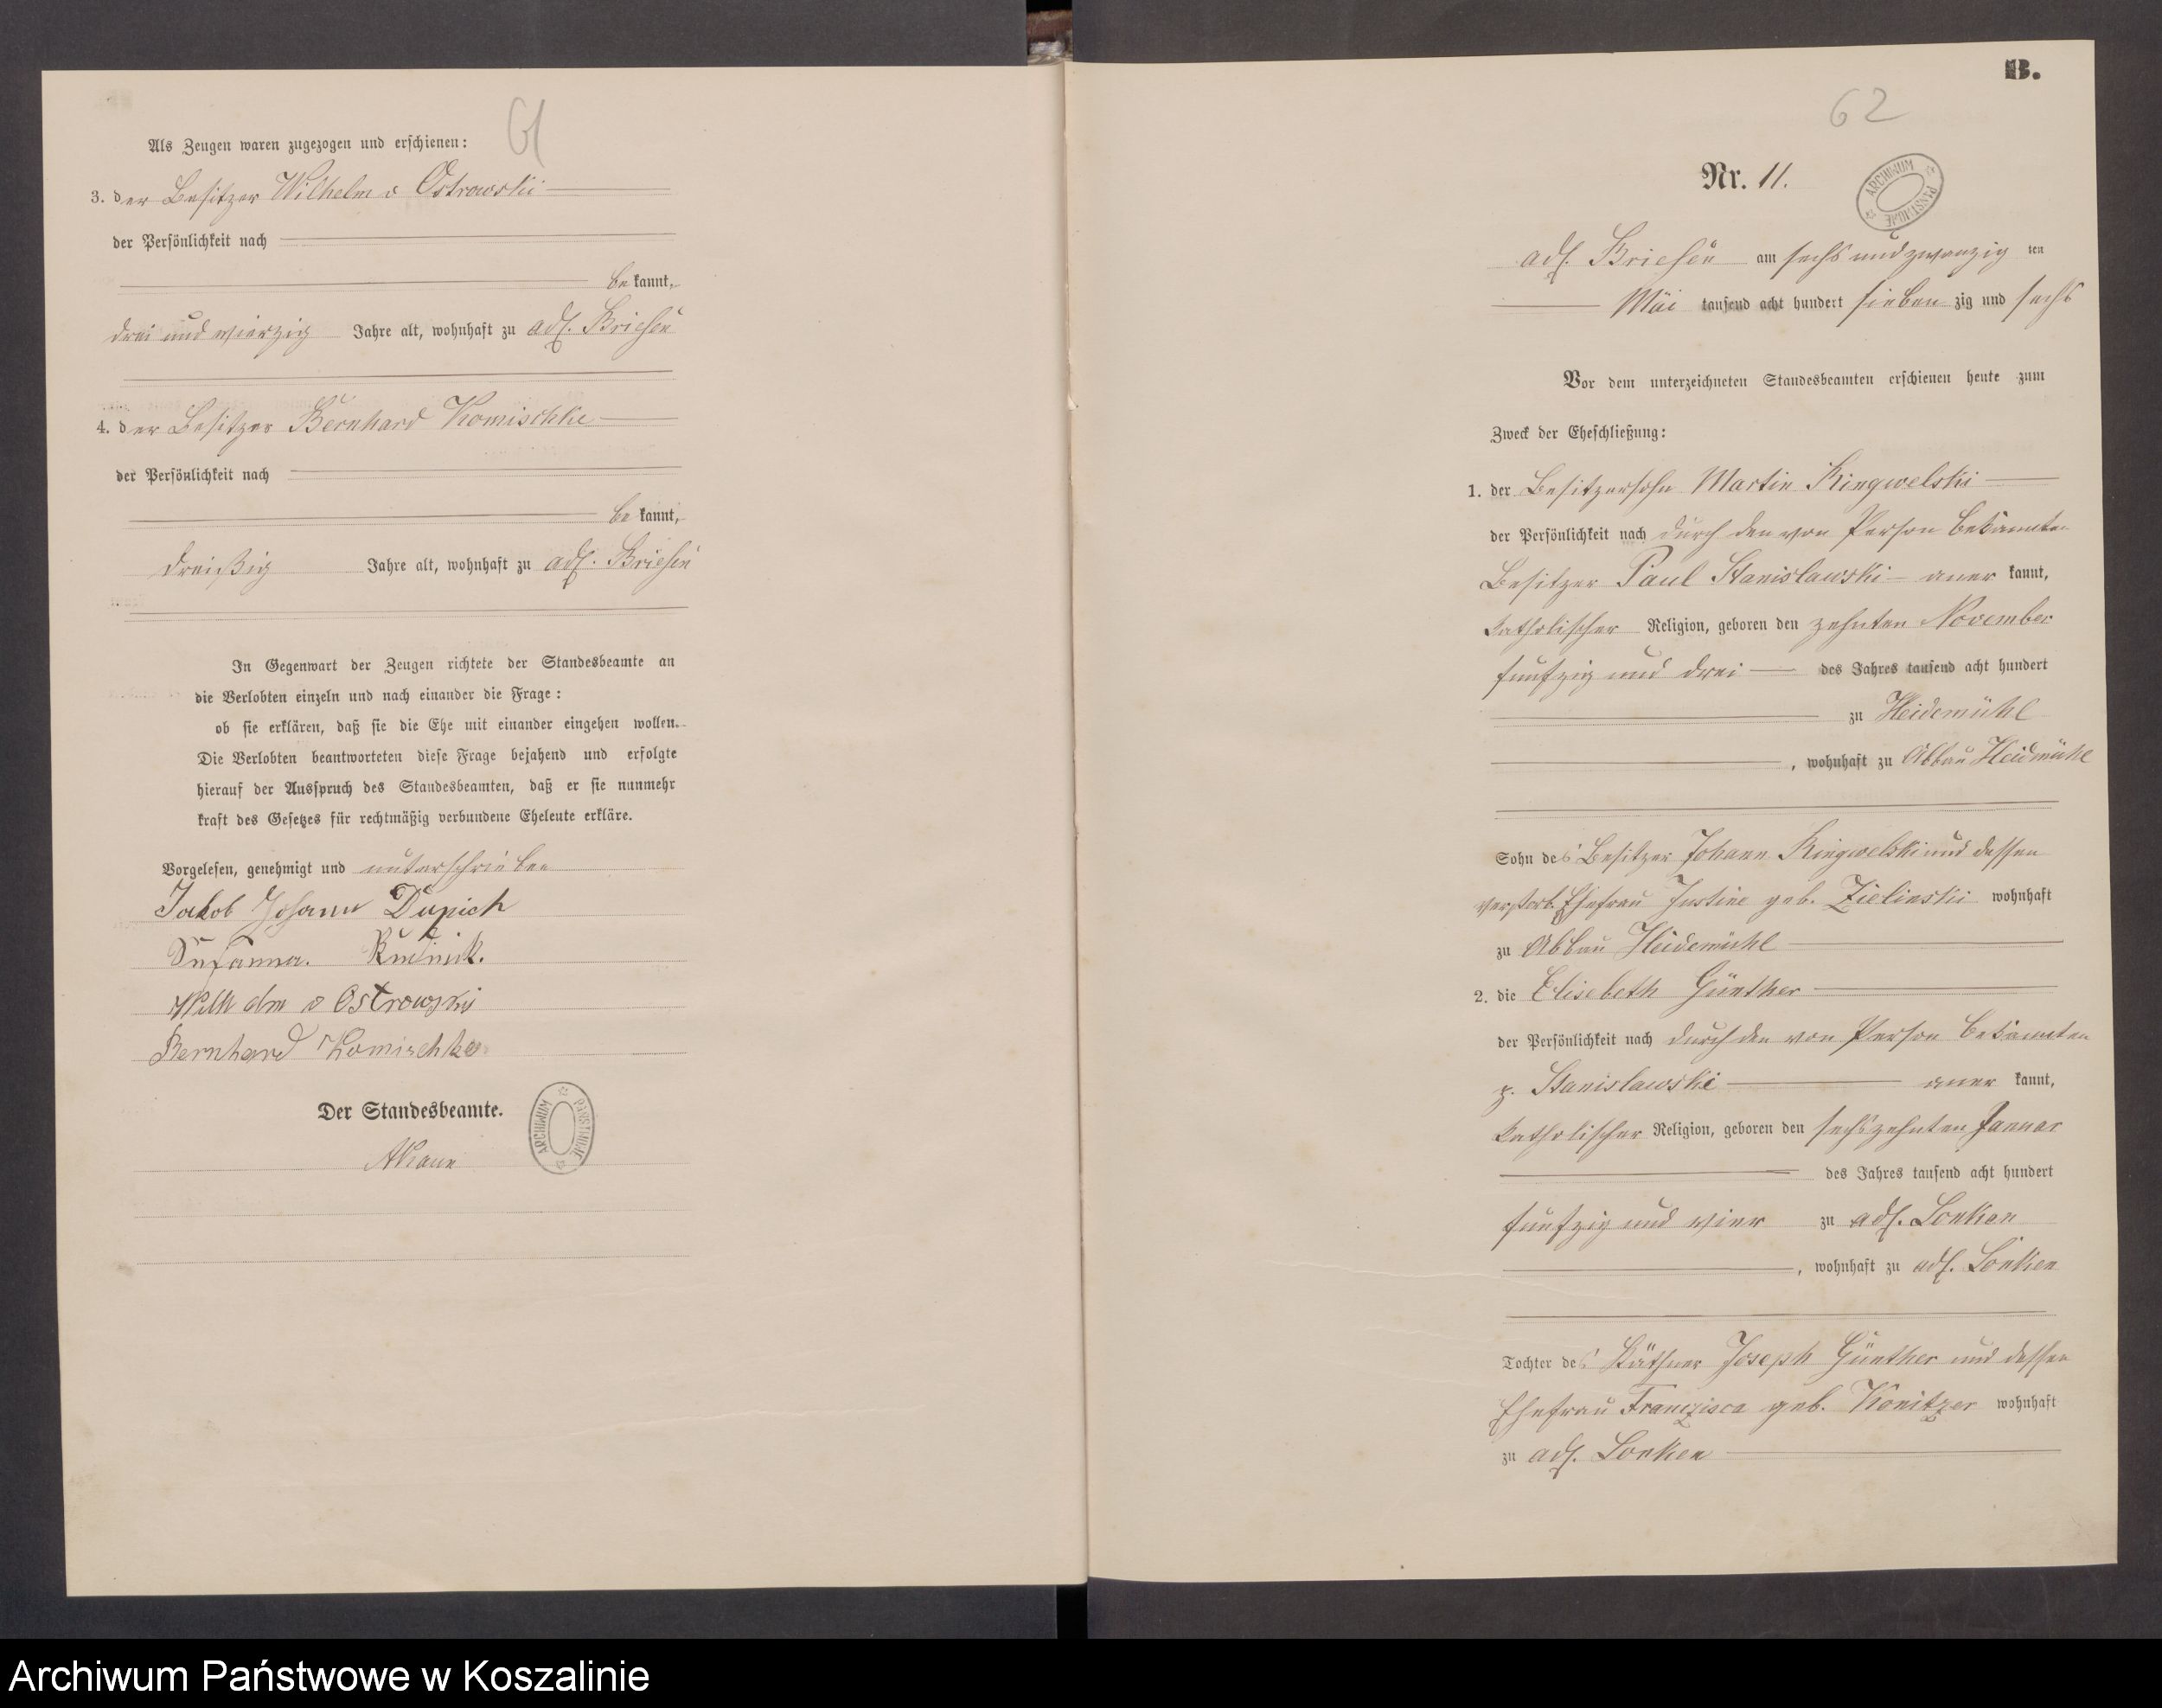 61
Als Zeugen waren zugezogen und erschienen:
3. der Besitzer Wilhelm v Ostrowski
der Persönlichkeit nach
be kannt,
drei und vierzig Jahre alt, wohnhaft zu adl. Briesen
4. der Besitzer Bernhard Komischke
der Persönlichkeit nach
be kannt,
dreißig Jahre alt, wohnhaft zu adl. Briesen
In Gegenwart der Zeugen richtete der Standesbeamte an
die Verlobten einzeln und nach einander die Frage:
ob sie erklären, daß sie die Ehe mit einander eingehen wollen.
Die Verlobten beantworteten diese Frage bejahend und erfolgte
hierauf der Ausspruch des Standesbeamten, daß er sie nunmehr
kraft des Gesetzes für rechtmäßig verbundene Eheleute erkläre.
Vorgelesen, genehmigt und unterschrieben
Jakob Johann Dupich
Susanna. Rudnick.
Wilhelm v Ostrowski
Bernhard Komischke
Der Standesbeamte.
ARCHIWUM PAŃSTWOWE
B.
62
Nr. 11.
ARCHIWUM PAŃSTWOWE
adl. Briesen am sechs und zwanzig ten
Mai tausend acht hundert sieben zig und sechs
Vor dem unterzeichneten Standesbeamten erschienen heute zum
Zweck der Eheschließung:
1. der Besitzersohn Martin Ringwelski
der Persönlichkeit nach durch den von Person bekannten
Besitzer Paul Stanislawski aner kannt,
katholischer Religion, geboren den zehnten November
funfzig und drei des Jahres tausend acht hundert
zu Heidemühl
, wohnhaft zu Abbau Heidmühl
Sohn des Besitzer Johann Ringwelski und dessen
verstorb. Ehefrau Justine geb. Zielinski wohnhaft
zu Abbau Heidemühl
2. die Elisebeth Günther
der Persönlichkeit nach durch den von Person bekannten
p. Stanislawski aner kannt,
katholischer Religion, geboren den sechszehnten Januar
des Jahres tausend acht hundert
funfzig und vier zu adl. Lonken
, wohnhaft zu adl. Lonken
Tochter des Käthner Joseph Günther und dessen
Ehefrau Franzisca geb. Konitzer wohnhaft
zu adl. Lonken
Archiwum Państwowe w Koszalinie